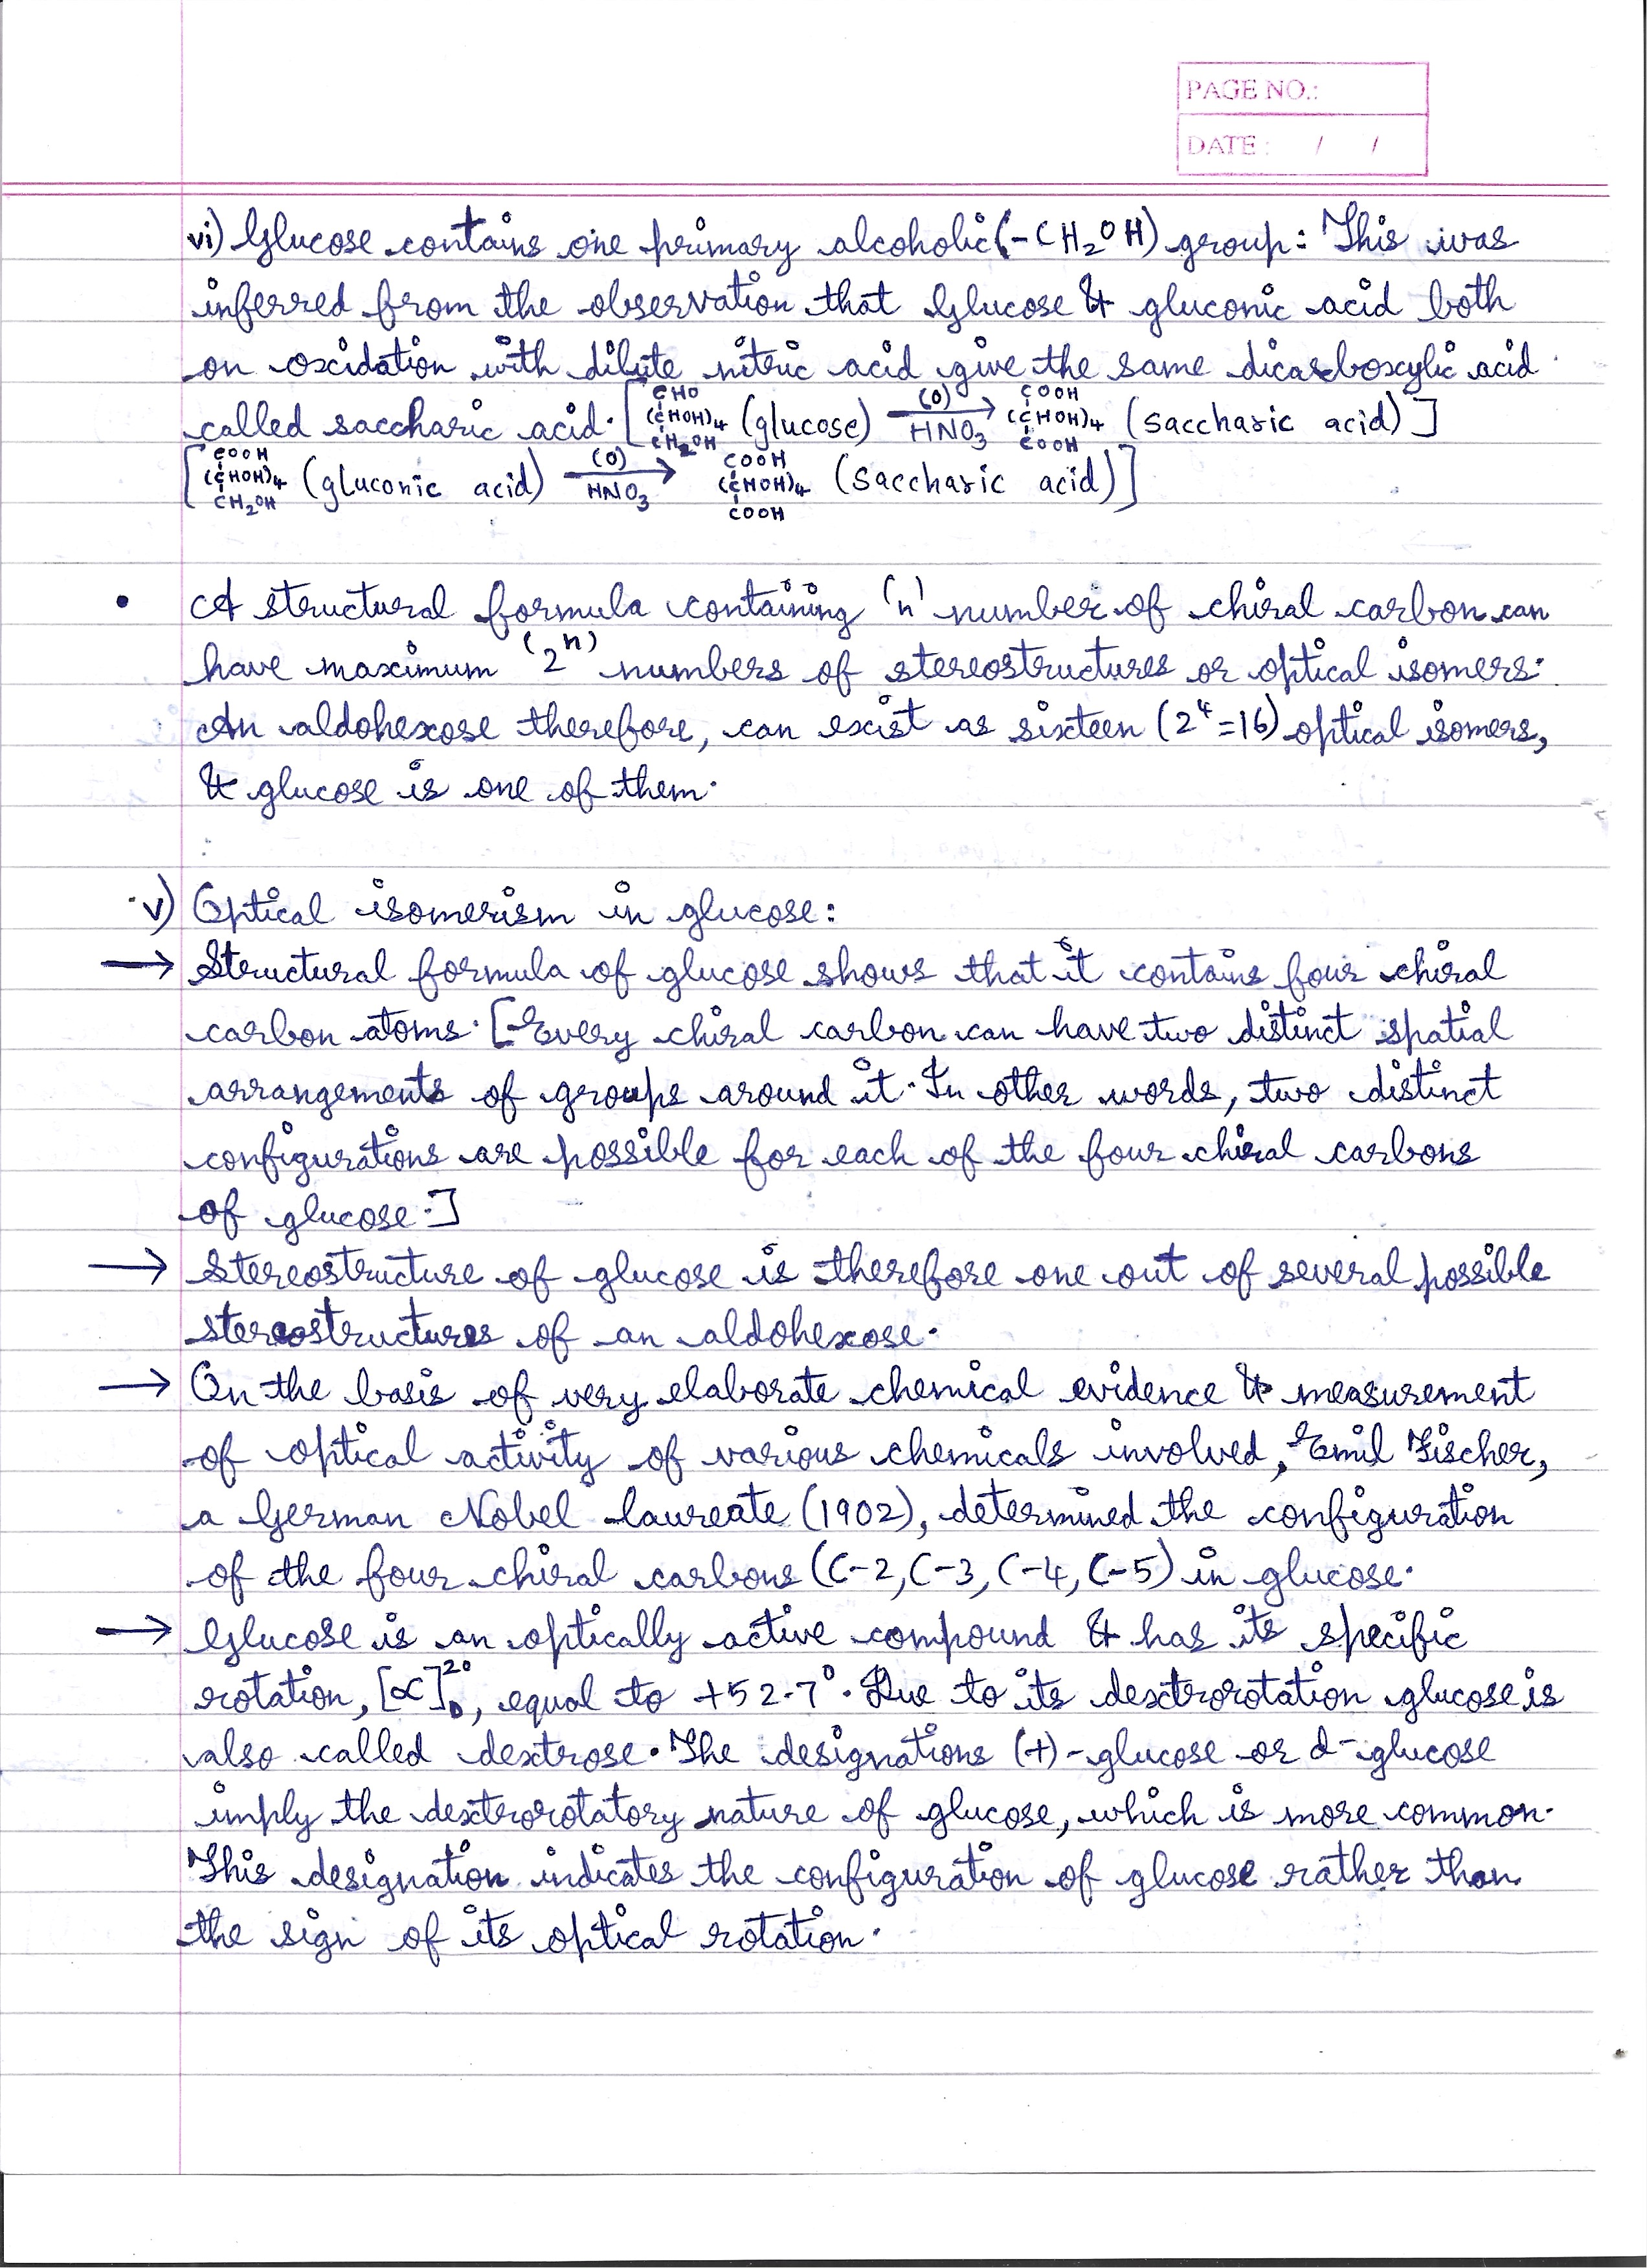 PAGE NO.:
DATE : / /
vi) Glucose contains one primary alcoholic (-CH₂OH) group: This was
inferred from the observation that Glucose & gluconic acid both
on oxidation with dilute nitric acid give the same dicarboxylic acid
called saccharic acid. [CHO (CHOH)₄ CH₂OH (glucose) (O) → HNO₃ COOH (CHOH)₄ COOH (saccharic acid)]
[COOH (CHOH)₄ CH₂OH (gluconic acid) (O) → HNO₃ COOH (CHOH)₄ COOH (saccharic acid)]
• A structural formula containing 'n' number of chiral carbon can
have maximum (2ⁿ) numbers of stereostructures or optical isomers.
An aldohexose therefore, can exist as sixteen (2⁴=16) optical isomers,
& glucose is one of them.
v) Optical isomerism in glucose:
→ Structural formula of glucose shows that it contains four chiral
carbon atoms. [Every chiral carbon can have two distinct spatial
arrangements of groups around it. In other words, two distinct
configurations are possible for each of the four chiral carbons
of glucose.]
→ Stereostructure of glucose is therefore one out of several possible
stereostructures of an aldohexose.
→ On the basis of very elaborate chemical evidence & measurement
of optical activity of various chemicals involved, Emil Fischer,
a German Nobel laureate (1902), determined the configuration
of the four chiral carbons (C-2, C-3, C-4, C-5) in glucose.
→ Glucose is an optically active compound & has its specific
rotation, [α]²⁰D, equal to +52.7°. Due to its dextrorotation glucose is
also called dextrose. The designations (+)-glucose or d-glucose
imply the dextrorotatory nature of glucose, which is more common.
This designation indicates the configuration of glucose rather than
the sign of its optical rotation.